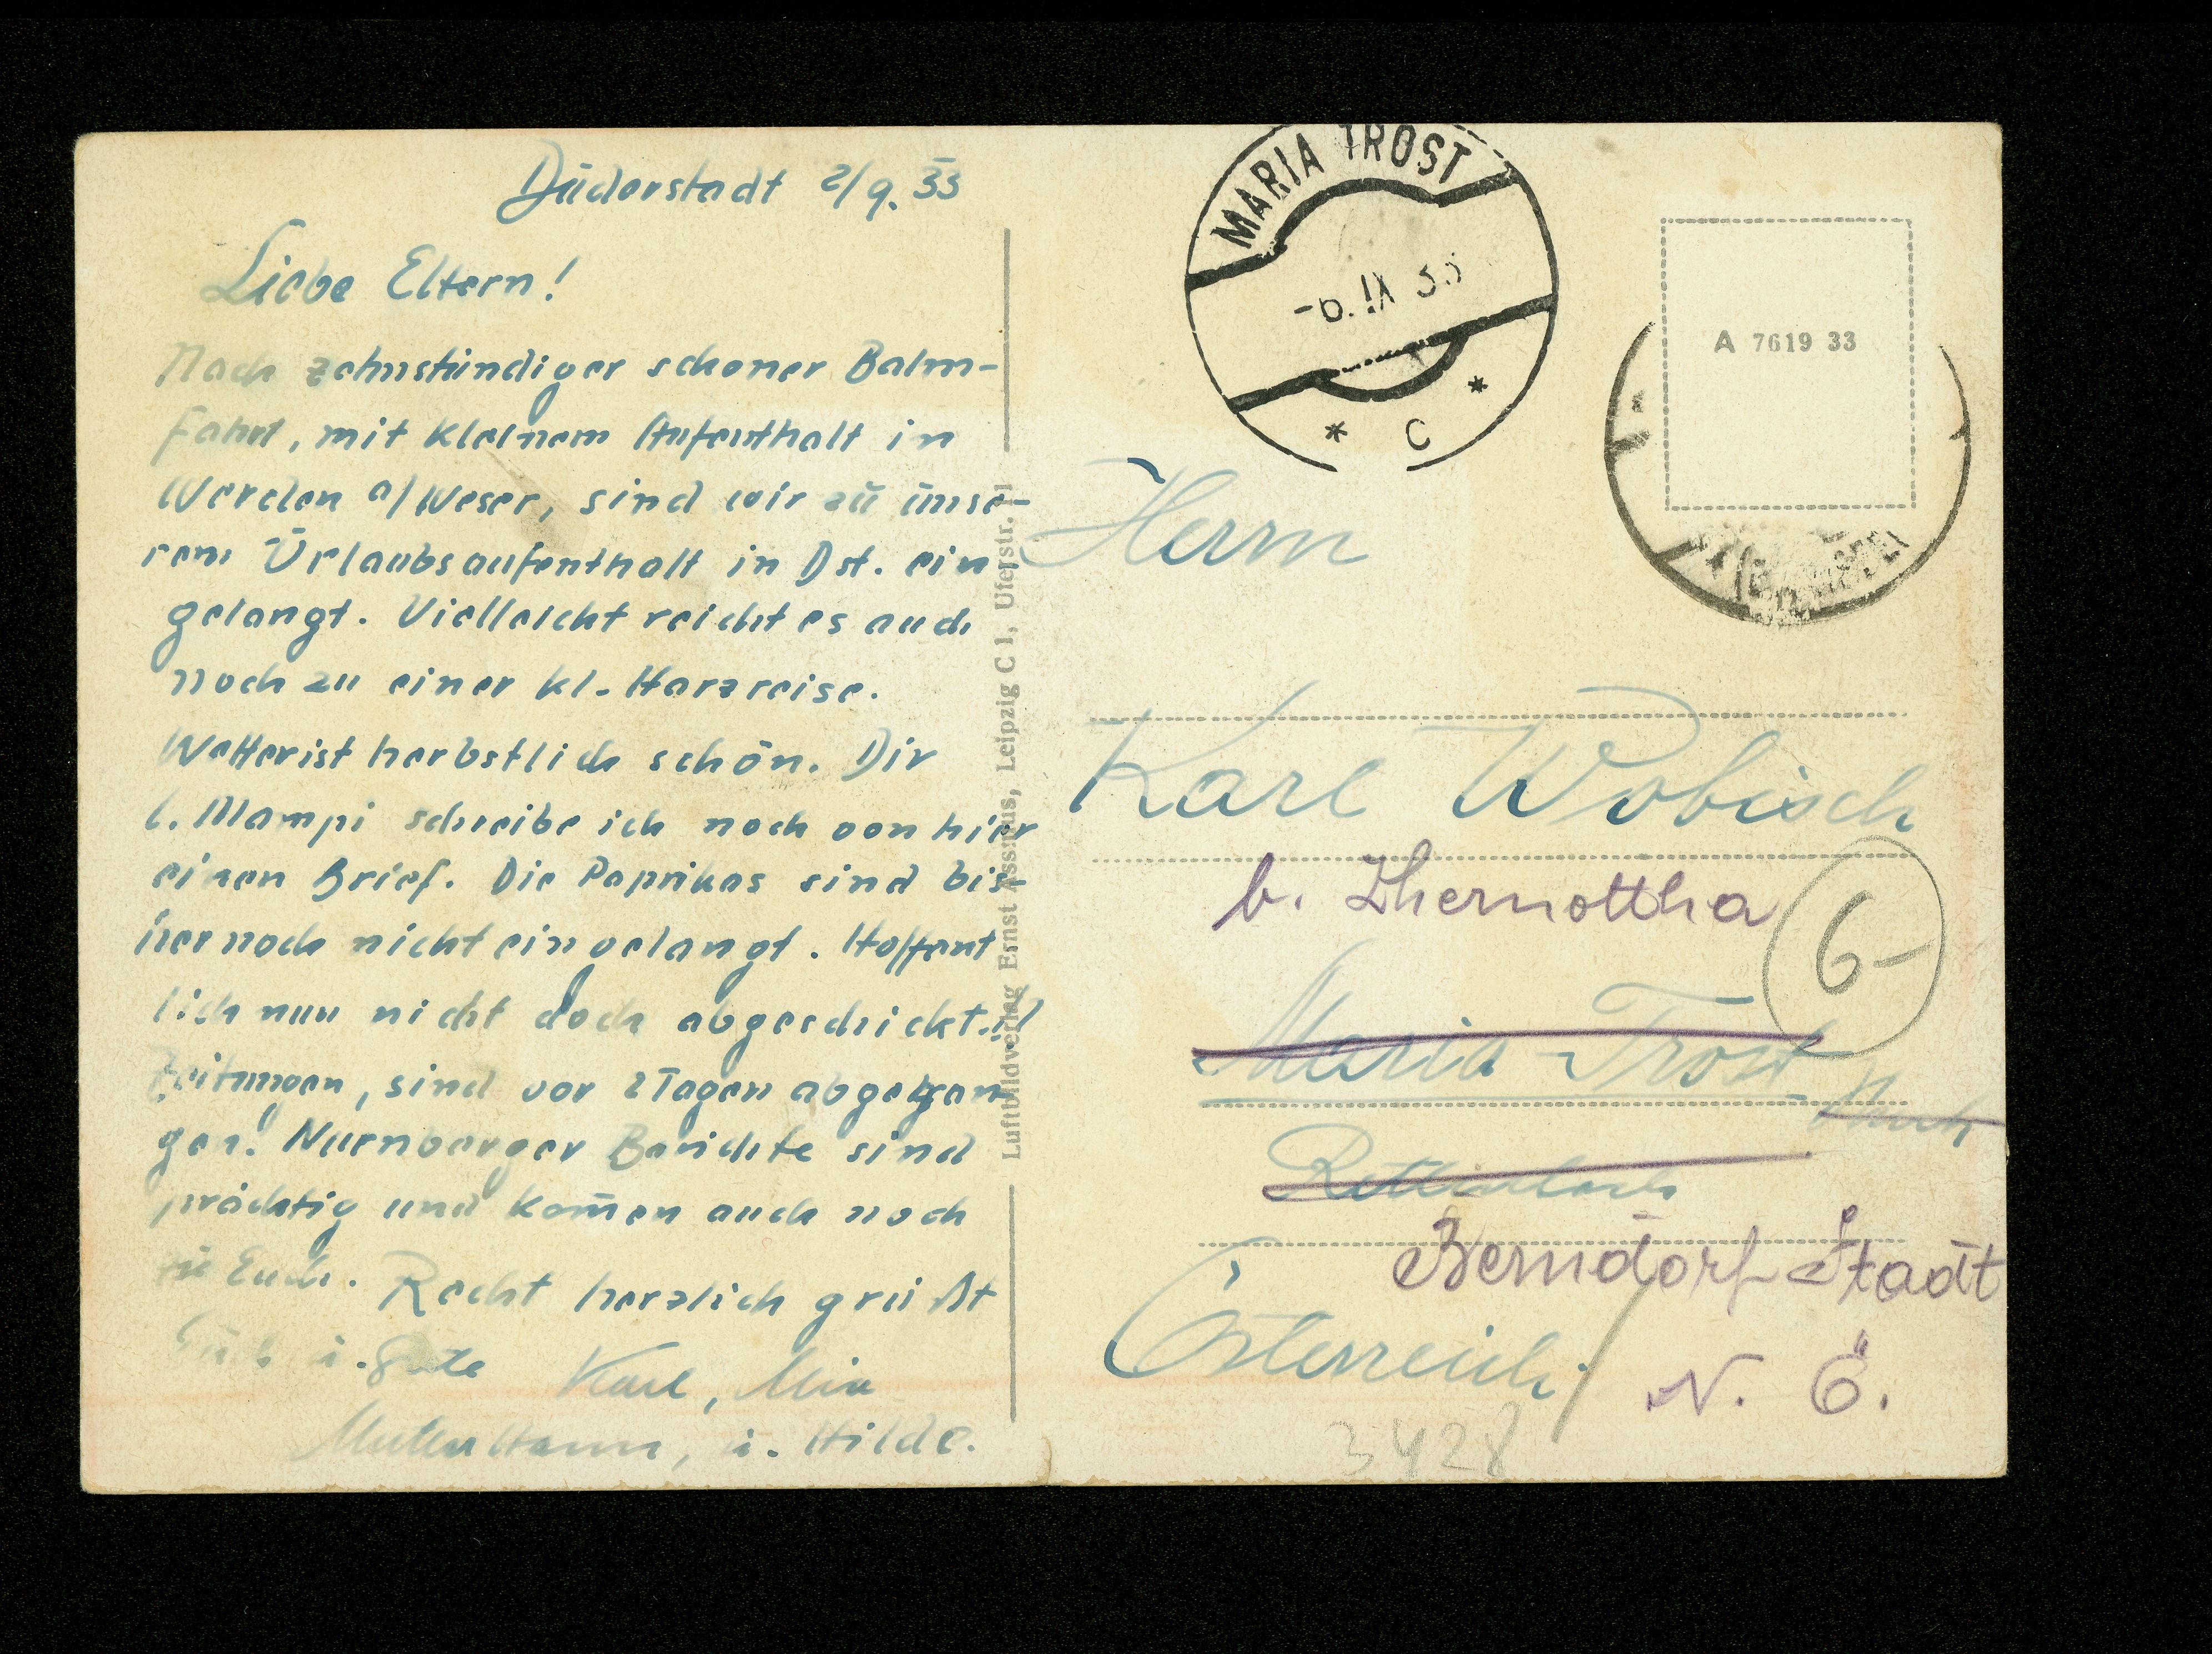 Düderstadt 2/9. 33
Liebe Eltern!
Nach zehnstündiger schoner Bahn-
fahrt, mit kleinem Aufenthalt in
Werden a/Weser, sind wir zu unse-
rem Urlaubsaufenthalt in Dst. ein
gelangt. Vielleicht reicht es auch
noch zu einer kl. Harzreise.
Wetter ist herbstlich schön. Dir
l. Mampi schreibe ich noch von hier
einen Brief. Die Paprikas sind bis-
her noch nicht eingelangt. Hoffent
lich nun nicht doch abgeschickt.!!
Zeitungen, sind vor 2 Tagen abgegan-
gen. Nürnberger Berichte sind
prächtig und kom̄en auch noch
zu Euch. Recht herzlich grüßt
Euch u. Karl, Mia
Hann, u. Hilde.
Luftbildverlag Ernst Assmus, Leipzig C 1, Uferstr.
MARIA TROST
-6. IX 33
* C *
A 7619 33
Herrn
Karl Wobisch
b. Zhernottha
6-
Maria-Trost
Berndorf Stadt
Österreich
N. Ö.
3428